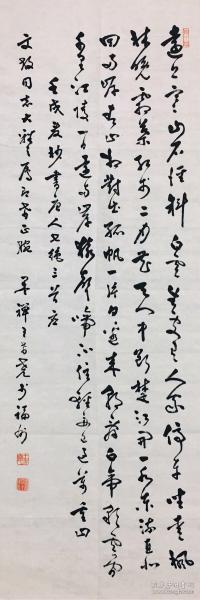 遠上寒山石徑斜白雲生處有人家停車坐愛楓
林晚霜葉紅於二月花天門中斷楚江開碧水東流至此
回兩岸青山相對出孤帆一片日邊來朝辭白帝彩雲間
千里江陵一日還兩岸猿聲啼不住輕舟已過萬重山
壬戌夏抄書唐人七絕三首應
同志大雅之屬即希正腕 於福州